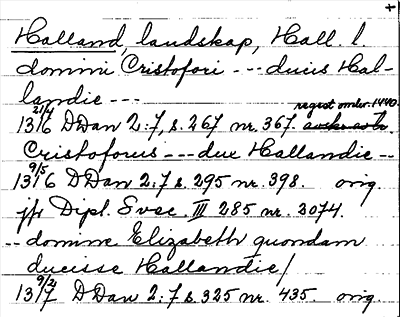 +
Halland, landskap, Hall. l.
domini Cristofori --- ducis Hal-
landie ---
regest omkr. 1440.
13 21/4 16 DDan 2:7, s. 267 nr. 367.
Cristoforus --- dux Hallandie --
13 9/5 16 DDan 2:7 s. 295 nr. 398. orig.
jfr Dipl. Svec. III 285 nr. 2074.
-- domine Elizabeth quondam
ducisse Hallandie/
13 9/2 17 DDan 2:7 s. 325 nr. 435. orig.